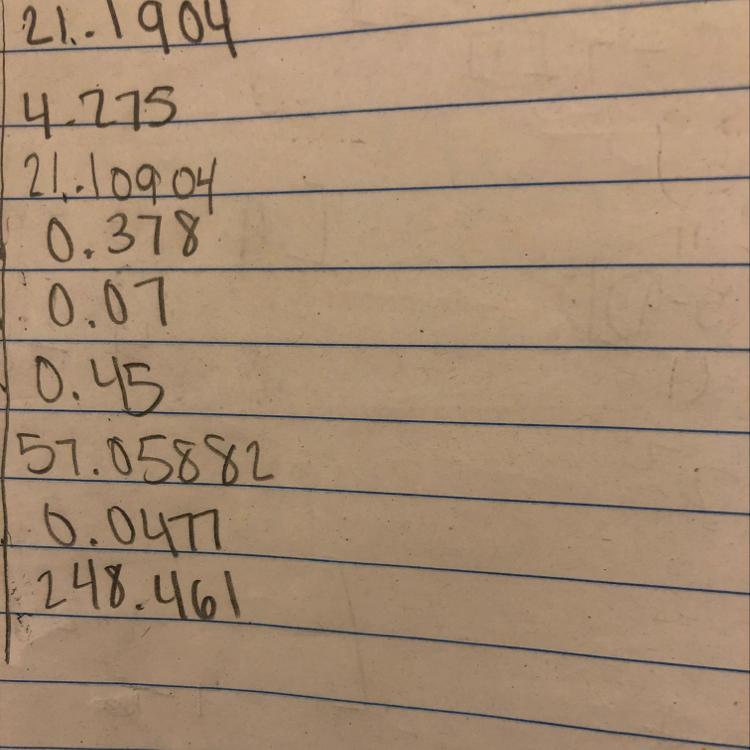 21.1904
4.275
21.10904
0.378
0.07
0.45
57.05882
0.0477
248.461